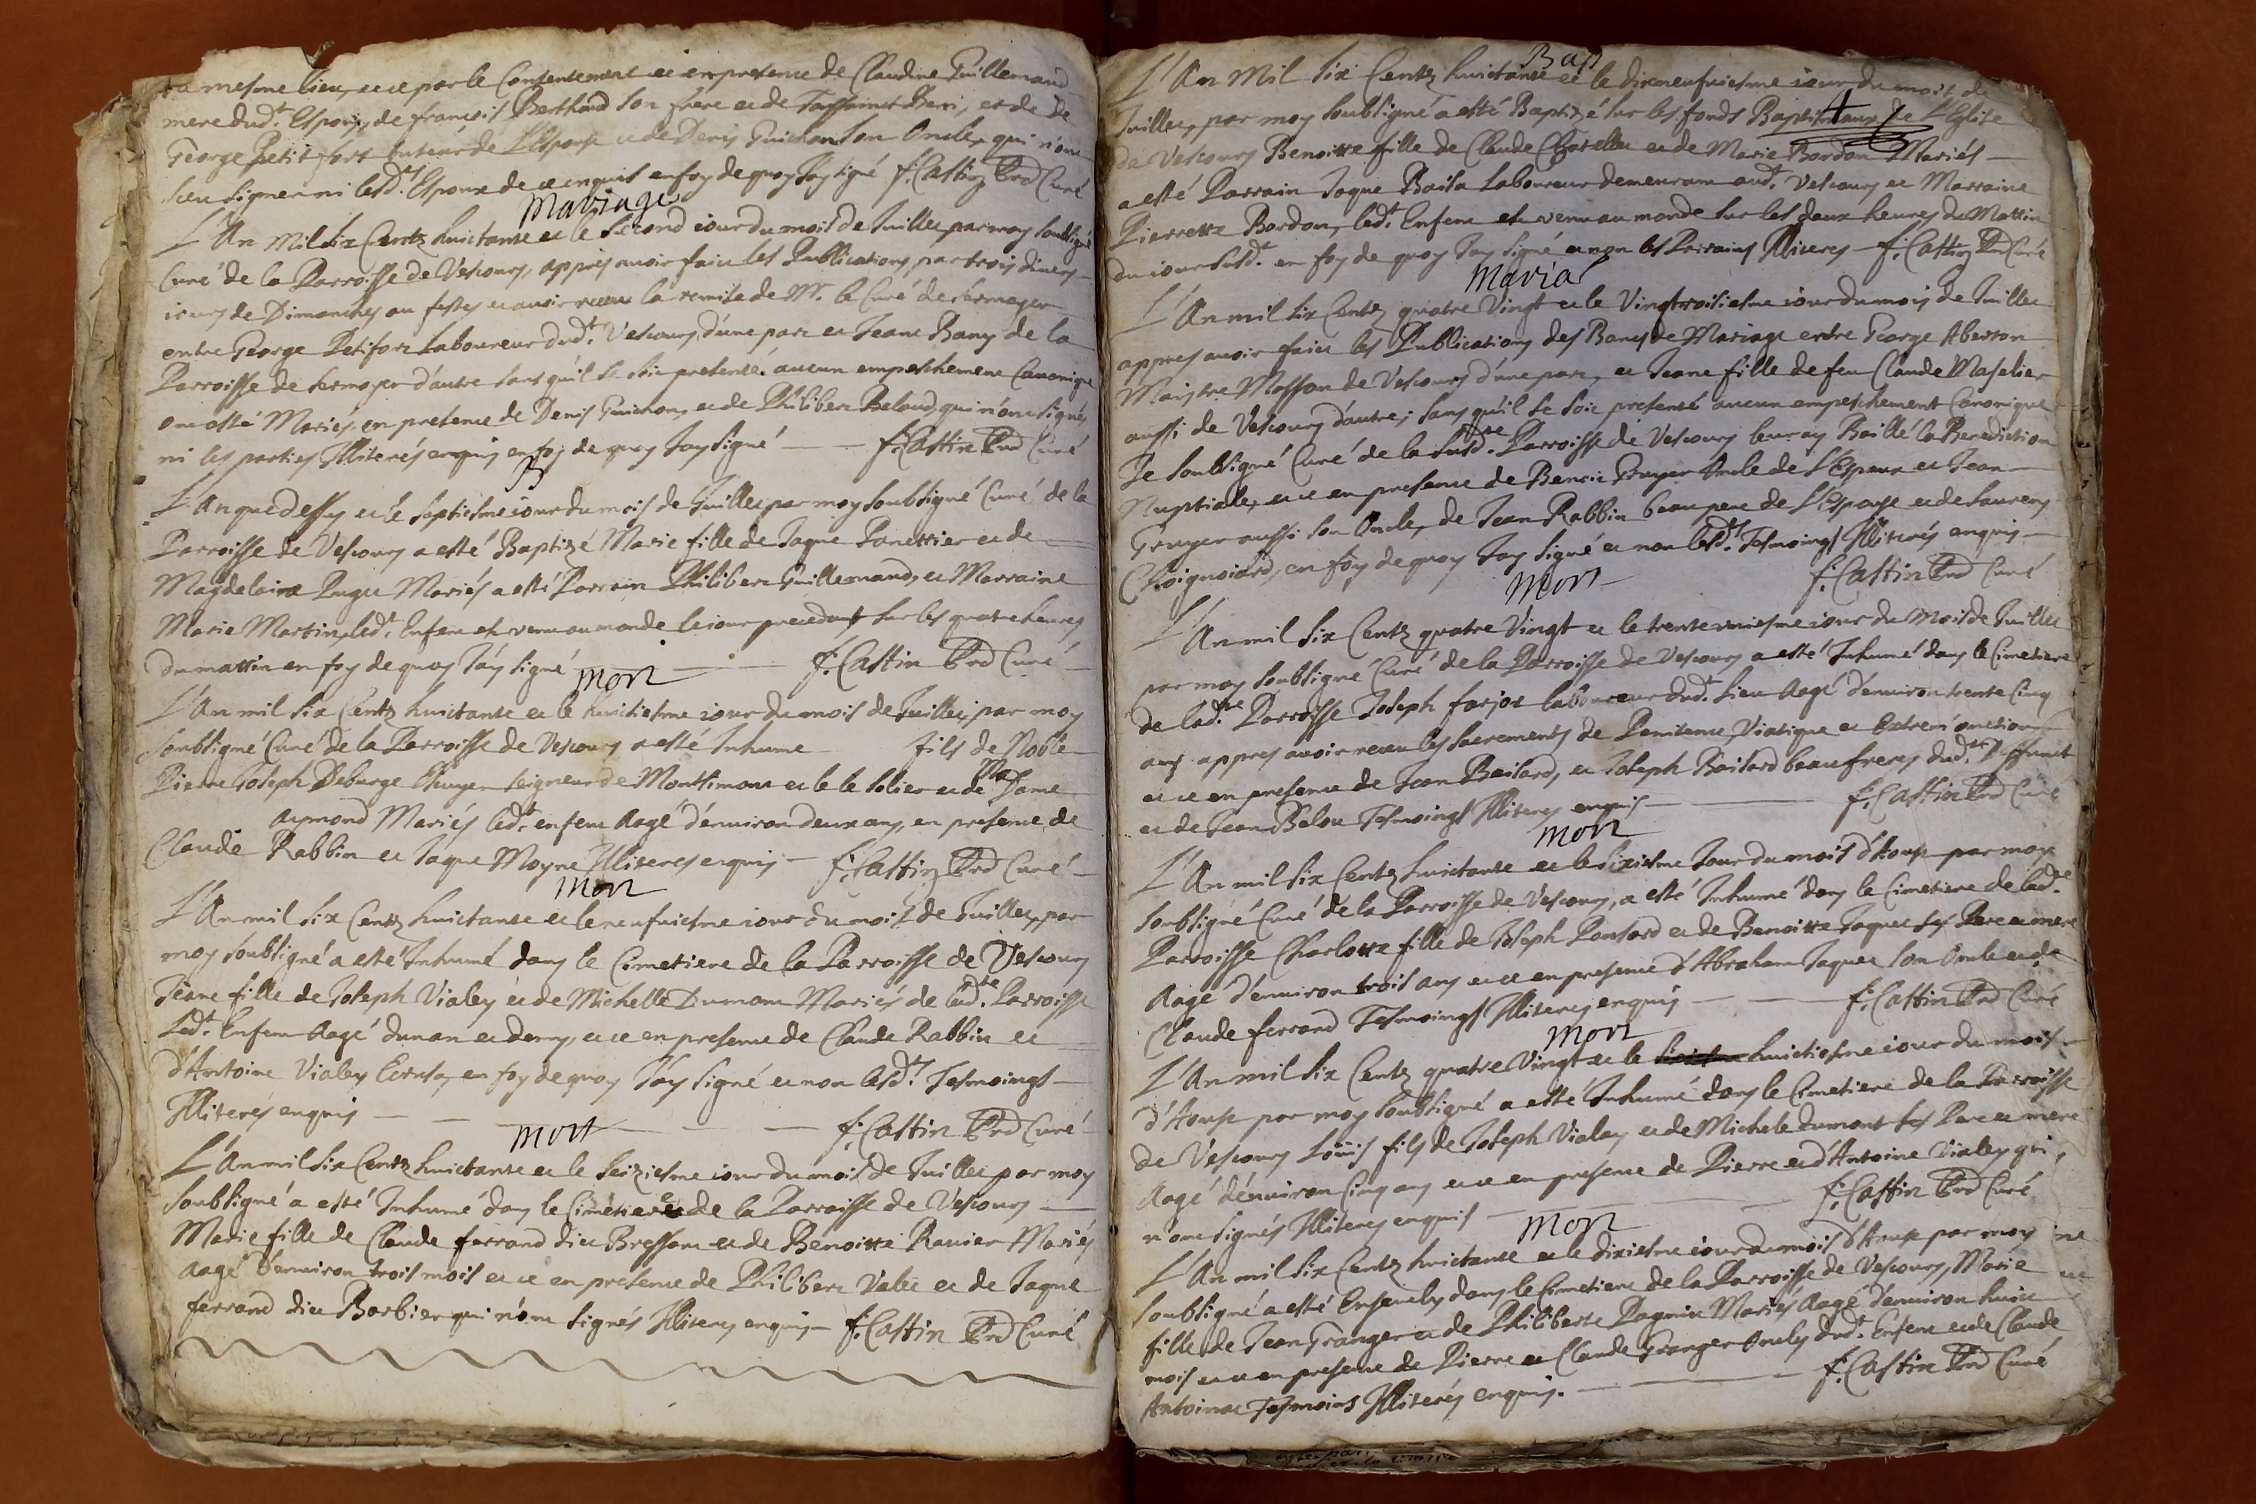 mesme lieu, et ce par le Consentement et en presence de Claudine Guillemaud
mere dud.t Espoux, de françois Berthard son frere et de Toussainct Beri, et de
George Petitfort tuteur de L'Espouse et de Denis Guichon son Oncle, qui n'ont
sceu signer ni lesd.t Espoux de ce enquis en foy de quoy Jay signé f. Castin Prd Curé
Mariage
L'An Mil Six Centz huictante et le Second iour du mois de Juillet, par moy soubsigné
Curé de la Parroisse de Vescours, appres avoir faict les Publications par trois divers
iours de Dimanches ou festes et avoir receu la remise de Mr. le Curé de Sermoyer
entre George Petitfort Laboureur dud.t Vescours d'une part et Jeane Bany de la
Parroisse de Sermoyer d'autre sans qu'il se soit presenté aucun empeschement Canonique
ont esté Mariés en presence de Denis Guichon, et de Philibert Belaud, qui n'ont signés
ni les parties Illiterés enquis en foy de quoy Jay signé f. Castin Prd Curé
B
L'An que dessus et le septiesme iour du mois de Juillet par moy soubsigné Curé de la
Parroisse de Vescours a esté Baptizé Marie fille de Jaque Panettier et de
Magdelaine Puget Mariés a esté Parrain Philibert Guillemaud, et Marraine
Marie Martin, led.t Enfent est venu au monde le iour precedent sur les quatre heures
du mattin en foy de quoy Jay signé f. Castin Prd Curé
Mort
L'An mil six Centz huictante et le huictiesme iour du mois de Juillet, par moy
soubsigné Curé de la Parroisse de Vescours a esté Inhume fils de Noble
Pierre Joseph Deburge Escuyer seigneur de Montsimont et le le Solier et de Ma Dame
Aymond Mariés led.t enfent Aagé d'environ deux ans, en presence de
Claude Rabbin et Jaque Moyne Illiteres enquis f. Castin Prd Curé
Mort
L'An mil six Centz huictante et le neufviesme iour du mois de Juillet, par
moy soubsigné a esté Inhumé dans le Cimetiere de la Parroisse de Vescours
Jeane fille de Joseph Vialey et de Michelle Dumont Mariés de lad.te Parroisse
Led.t Enfent Aagé dun an et demy, et ce en presence de Claude Rabbin et
d'Antoine Vialey en foy de quoy Jay signé et non lesd.t Tesmoings
Illiterés enquis f. Castin Prd Curé
Mort
L'An mil six Centz huictante et le seiziesme iour du mois de Juillet par moy
soubsigné a esté Inhumé dans le Cimetiere de la Parroisse de Vescours
Marie fille de Claude ferrand dict Bressant et de Benoitte Ravier Mariés
Aagé d'environ trois mois et ce en presence de Philibert Valet et de Jaque
ferrand dict Barbier qui n'ont signés Illiteres enquis f. Castin Prd Curé
Bap
L'An Mil Six Centz huictante et le dixneufviesme iour du mois de
Juillet, par moy soubsigné a esté Baptizé sur les fonds Baptismaux de L'Eglise
de Vescours Benoitte fille de Claude Charellet et de Marie Bordon Mariés
a esté Parrain Jaque Baila Laboureur demeurant aud.t Vescours et Marraine
Pierrette Bordon, led.t Enfent est venu au monde sur les deux heures du Mattin
du iour susd.t en foy de quoy Jay signé et non les Parrains Illiteres f. Castin Prd Curé
Maria
L'An mil six Centz quatre Vingt et le Vingttroisiesme iour du mois de Juillet
appres avoir faict les Publications des Bancs de Mariage entre George Aberson
Maistre Masson de Vescours d'une part, et Jeane fille de feu Claude Maselier
aussi de Vescours d'autre; sans qu'il se soit presenté aucun empeschement Canonique
Je soubsigné Curé de la susd.te Parroisse de Vescours leur ay Baillé la Benediction
Nuptiale, et ce en presence de Benoit Gruyer Oncle de L'Espoux et Jean
Gruyer aussi son Oncle, de Jean Rabbin beau pere de L'Espouse et de Laurent
Choignoiard, en foy de quoy Jay signé et non lesd.t Tesmoings Illiterés enquis
f. Castin Prd Curé
Mort
L'An mil six Centz quatre Vingt et le trente uniesme iour du Mois de Juillet
par moy soubsigné Curé de la Parroisse de Vescours a esté Inhumé dans le Cimetiere
de lad.te Parroisse Joseph farjot laboureur dud.t Lieu Aagé d'environ trente Cinq
ans appres avoir receu les sacrements de Penitence, Viatique et Extreme onction
et ce en presence de Jean Bailard, et Joseph Bailard beaufreres dud.t Deffunct
et de Jean Belou Tesmoings Illiteres enquis f. Castin Prd Curé
Mort
L'An mil six Centz huictante et le sixiesme Jour du mois d'Aoust par moy
soubsigné Curé de la Parroisse de Vescours, a esté Inhumé dans le Cimetiere de lad.te
Parroisse Charlotte fille de Joseph Ponsard et de Benoitte Jaquet ses Pere et mere
Aagé d'environ trois ans et ce en presence d'Abraham Jaquet son Oncle et de
Claude ferrand Tesmoings Illiteres enquis f. Castin Prd Curé
Mort
L'An mil six Centz quatre Vingt et le huictiesme iour du mois
d'Aoust par moy soubsigné a esté Inhumé dans le Cimetiere de la Parroisse
de Vescours Louis fils de Joseph Vialey et de Michele dumont ses Pere et mere
Aagé d'environ Cinq ans et ce en presence de Pierre et d'Antoine Vialey qui
n'ont signés Illiteres enquis f. Castin Prd Curé
Mort
L'An mil six Centz huictante et le dixiesme iour du mois d'Aoust par moy
soubsigné a esté Ensevely dans le Cimetiere de la Parroisse de Vescours, Marie
fille de Jean Granger et de Philiberte Pagnin Mariés Aagé d'environ huict
mois et ce en presence de Pierre et Claude Granger Oncles dud.t Enfent et de Claude
Antoinat Tesmoins Illiterés enquis. f. Castin Prd Curé